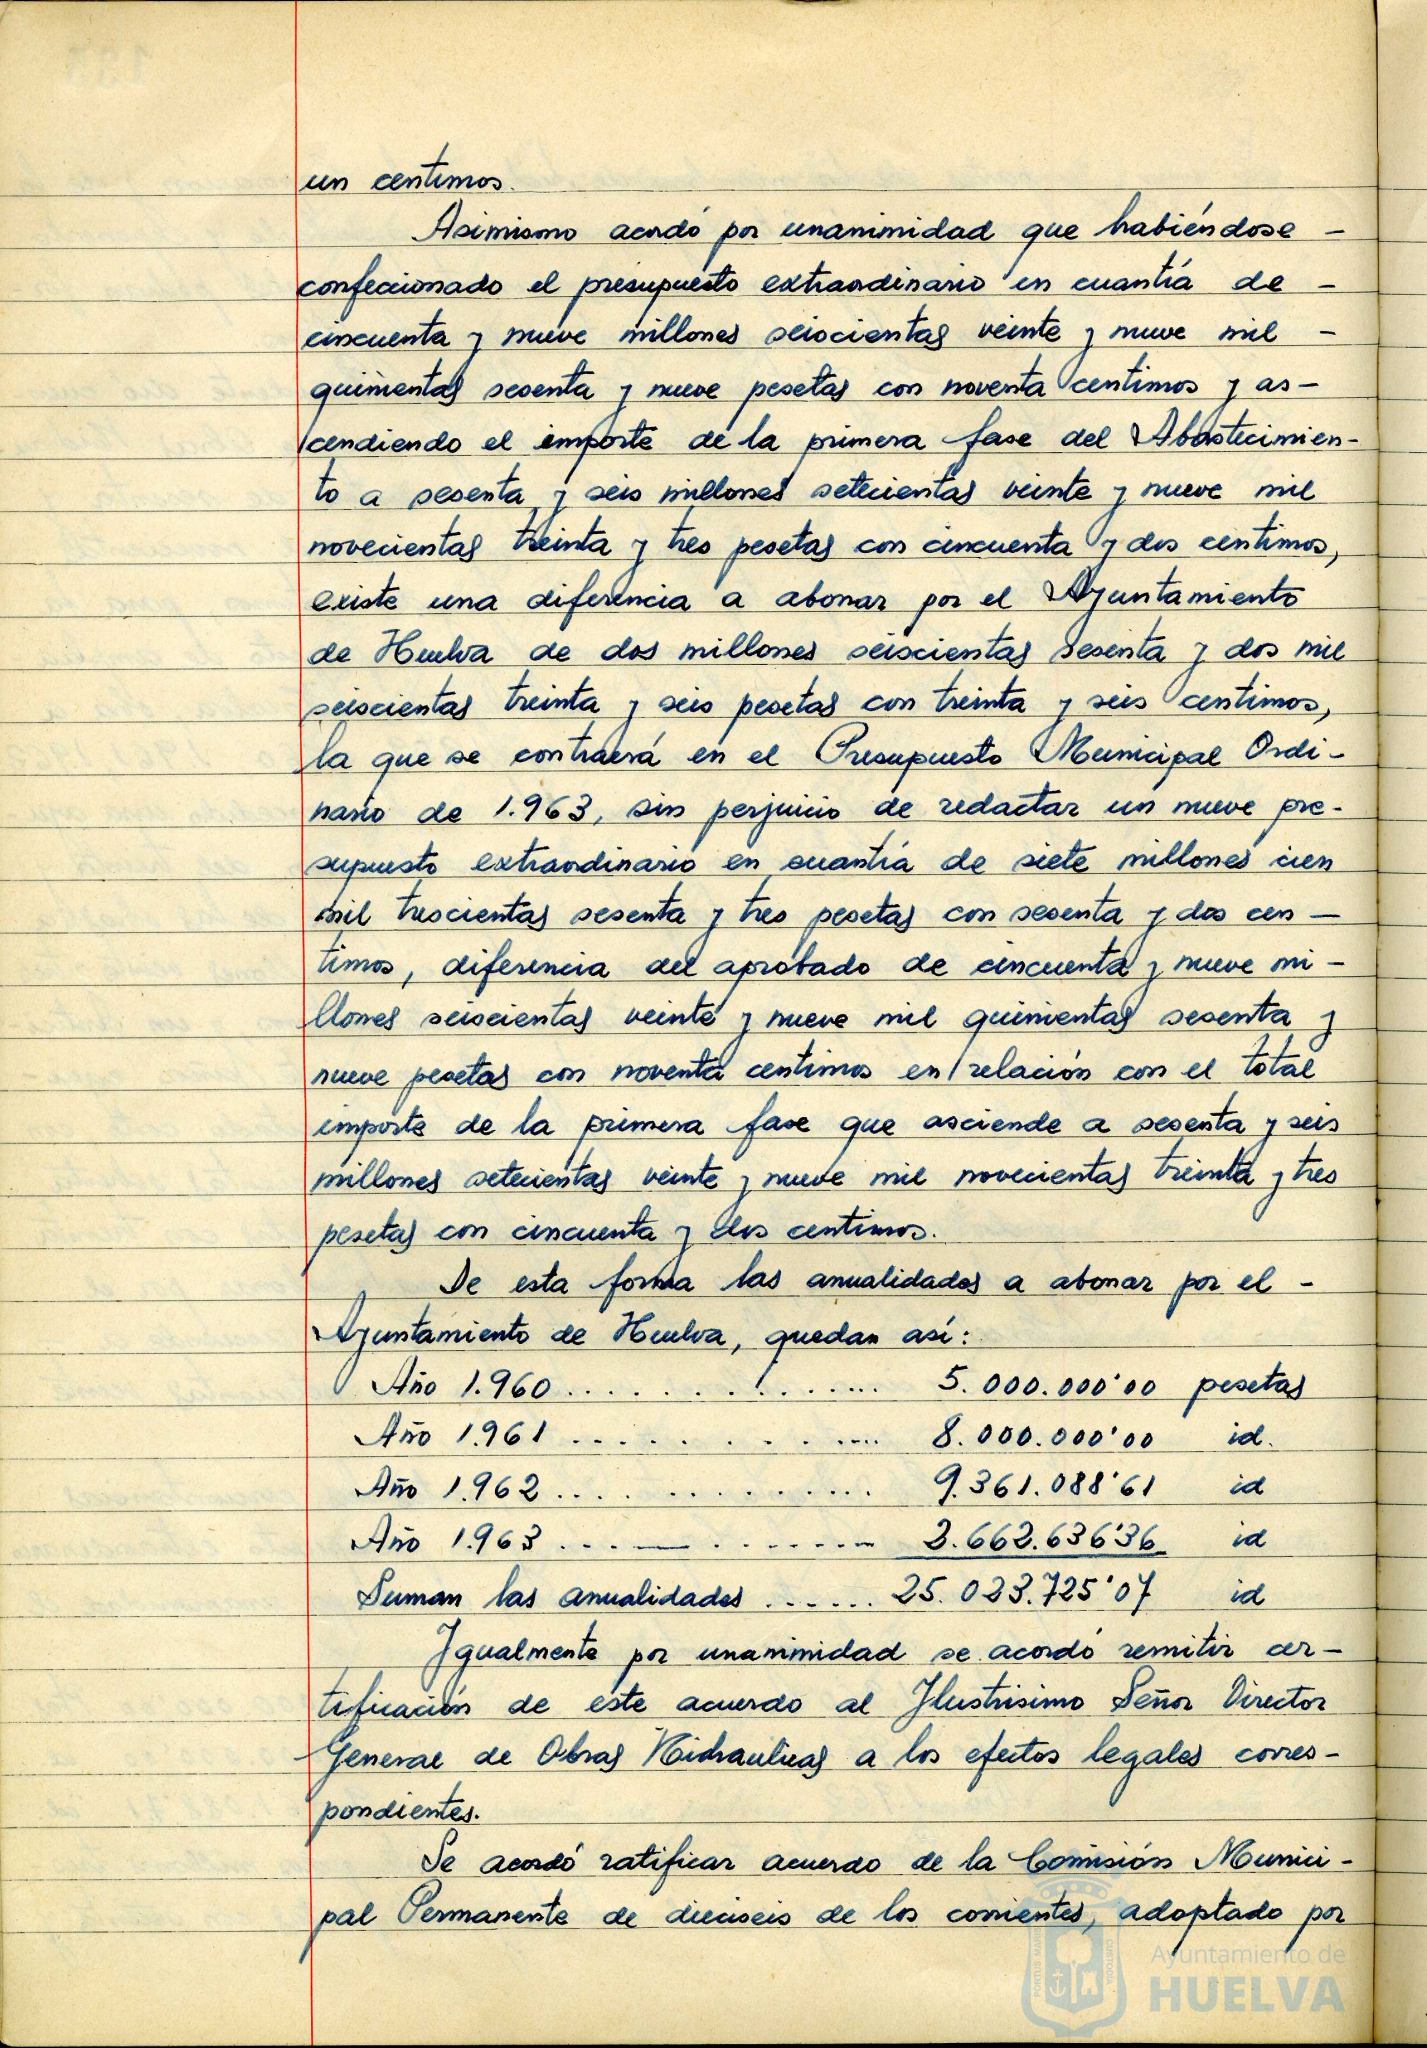 un centimos.
Asimismo acordó por unanimidad que habiéndose -
confeccionado el presupuesto extraordinario en cuantía de -
cincuenta y nueve millones seiscientas veinte y nueve mil -
quinientas sesenta y nueve pesetas con noventa centimos y as-
cendiendo el importe de la primera fase del Abastecimien-
to a sesenta y seis millones setecientas veinte y nueve mil
novecientas treinta y tres pesetas con cincuenta y dos centimos,
existe una diferencia a abonar por el Ayuntamiento
de Huelva de dos millones seiscientas sesenta y dos mil
seiscientas treinta y seis pesetas con treinta y seis centimos,
la que se contraerá en el Presupuesto Municipal Ordi-
nario de 1.963, sin perjuicio de redactar un nueve pre-
supuesto extraordinario en cuantía de siete millones cien
mil trescientas sesenta y tres pesetas con sesenta y dos cen-
timos, diferencia del aprobado de cincuenta y nueve mi-
llones seiscientas veinte y nueve mil quinientas sesenta y
nueve pesetas con noventa centimos en relación con el total
importe de la primera fase que asciende a sesenta y seis
millones setecientas veinte y nueve mil novecientas treinta y tres
pesetas con cincuenta y dos centimos.
De esta forma las anualidades a abonar por el -
Ayuntamiento de Huelva, quedan así:
Año 1.960 ................ 5.000.000'00 pesetas
Año 1.961 ................ 8.000.000'00 id.
Año 1.962 ................ 9.361.088'61 id
Año 1.963 ................ 2.662.636'36 id
Suman las anualidades ...... 25.023.725'07 id
Igualmente por unanimidad se acordó remitir cer-
tificación de este acuerdo al Ilustrisimo Señor Director
General de Obras Hidraulicas a los efectos legales corres-
pondientes.
Se acordó ratificar acuerdo de la Comisión Munici-
pal Permanente de dieciseis de los corrientes, adoptado por
Ayuntamiento de
HUELVA